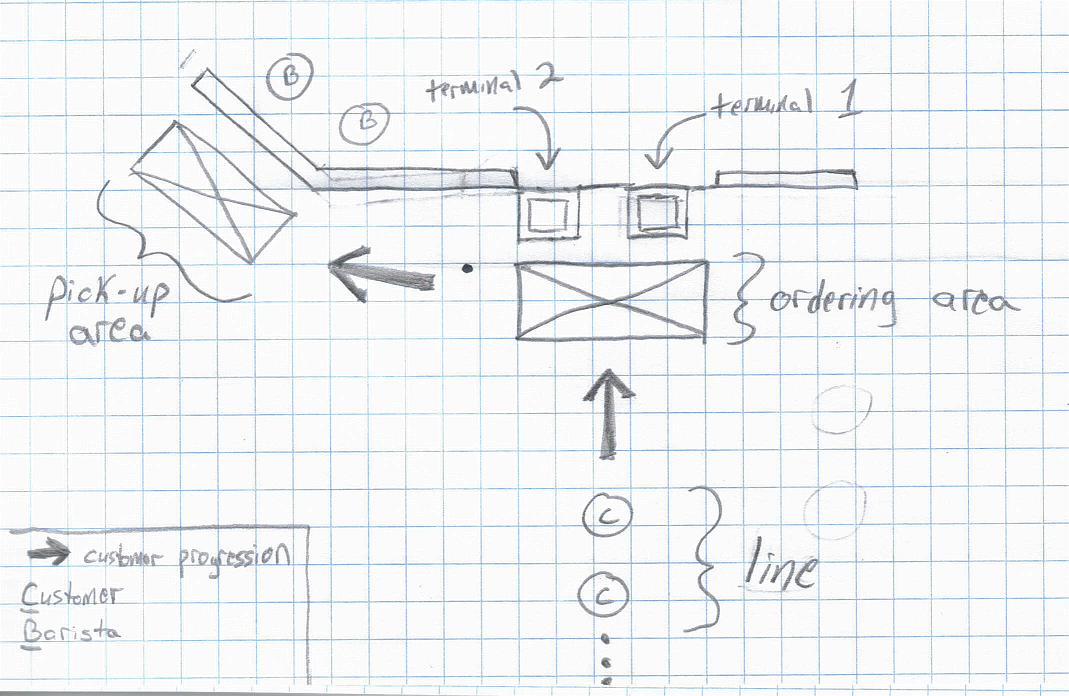 B
terminal 2
B
terminal 1
pick-up
area
ordering area
C
line
C
customer progression
Customer
Barista